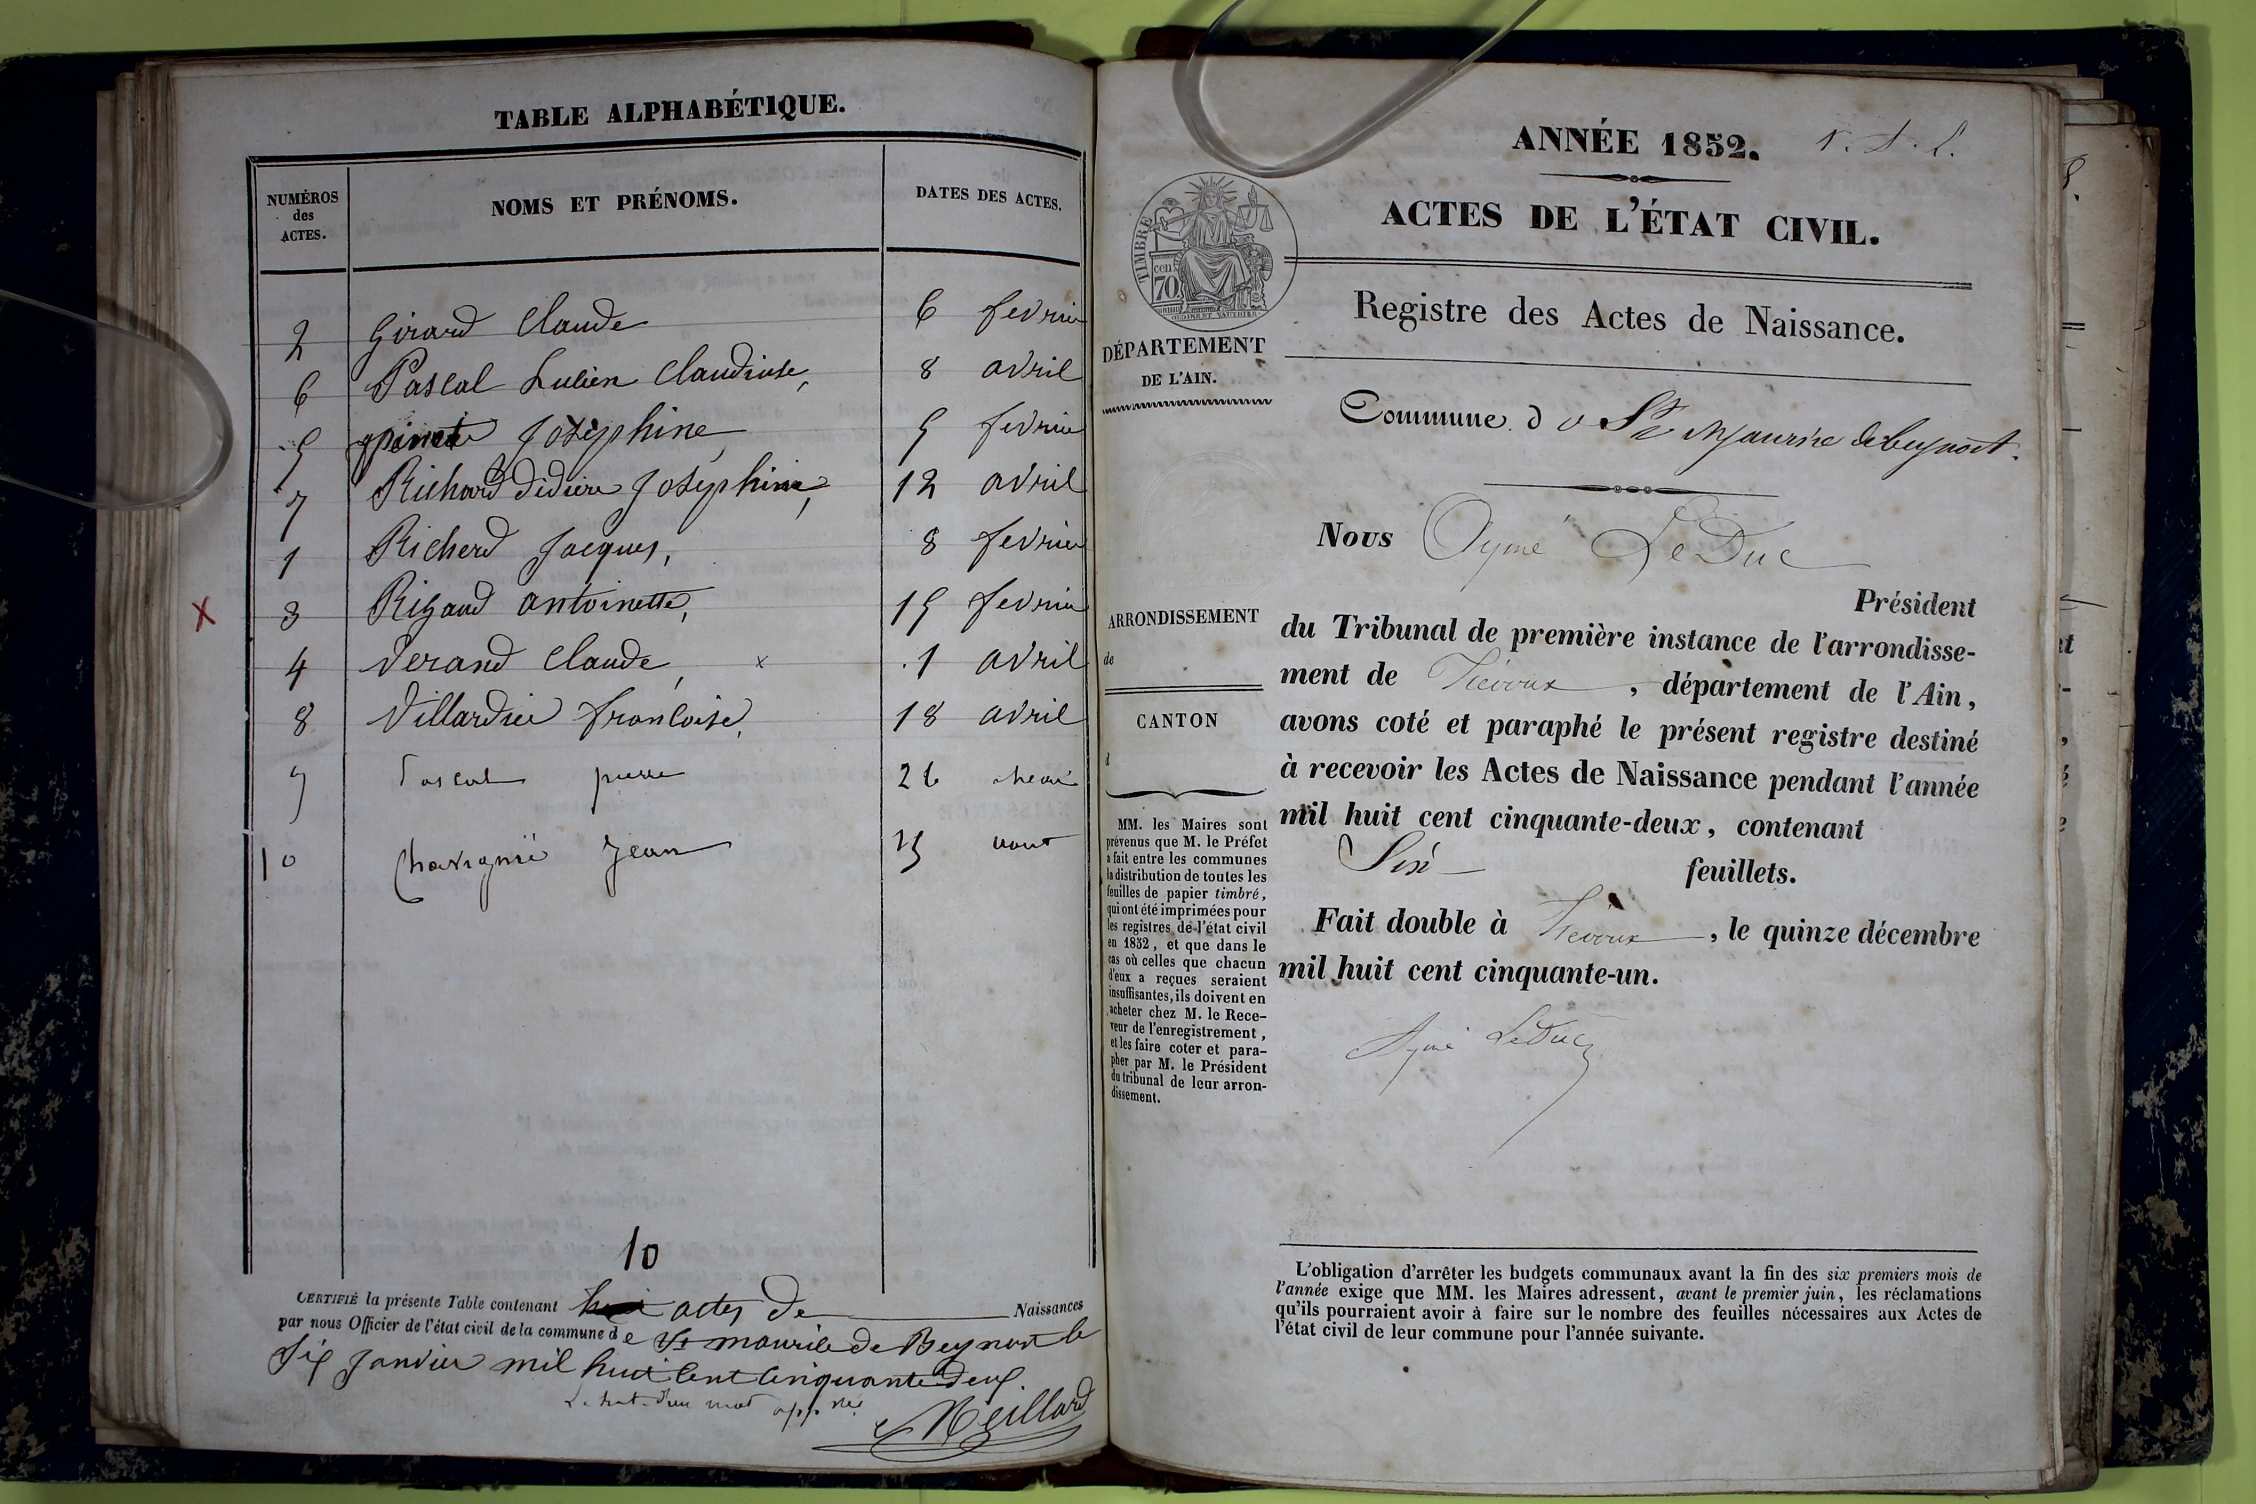 TABLE ALPHABÉTIQUE.
NUMÉROS des ACTES. NOMS ET PRÉNOMS. DATES DES ACTES.
2 Girard Claude 6 fevrier
6 Pascal Lucien Claudiuse, 8 avril
5 Josephine 5 fevrier
7 Richard didière Joséphine, 12 avril
1 Richerd Jacques, 8 fevrier
3 Rigaud antoinette, 15 fevrier
4 Verand Claude, 1 avril
8 Villardier francoise, 18 avril
9 Pascal pierre 26
10 Chavagnié Jean 25 aout
10
CERTIFIÉ la présente Table contenant huit actes de Naissances
par nous Officier de l'état civil de la commune de St maurice de Beynost le
Six Janvier mil huit cent Cinquante deux.
Meillard
ANNÉE 1852.
ACTES DE L'ÉTAT CIVIL.
Registre des Actes de Naissance.
TIMBRE
70 cen
DÉPARTEMENT
DE L'AIN.
Commune d St Maurice de beynost.
Nous Aymé LeDuc
Président
du Tribunal de première instance de l'arrondisse-
ment de Trévoux, département de l'Ain,
avons coté et paraphé le présent registre destiné
à recevoir les Actes de Naissance pendant l'année
mil huit cent cinquante-deux, contenant
Six feuillets.
Fait double à Trévoux, le quinze décembre
mil huit cent cinquante-un.
Aymé LeDuc
ARRONDISSEMENT
de
CANTON
d
MM. les Maires sont
prévenus que M. le Préfet
a fait entre les communes
la distribution de toutes les
feuilles de papier timbré,
qui ont été imprimées pour
les registres de l'état civil
en 1852, et que dans le
cas où celles que chacun
d'eux a reçues seraient
insuffisantes, ils doivent en
acheter chez M. le Rece-
veur de l'enregistrement,
et les faire coter et para-
pher par M. le Président
du tribunal de leur arron-
dissement.
L'obligation d'arrêter les budgets communaux avant la fin des six premiers mois de
l'année exige que MM. les Maires adressent, avant le premier juin, les réclamations
qu'ils pourraient avoir à faire sur le nombre des feuilles nécessaires aux Actes de
l'état civil de leur commune pour l'année suivante.